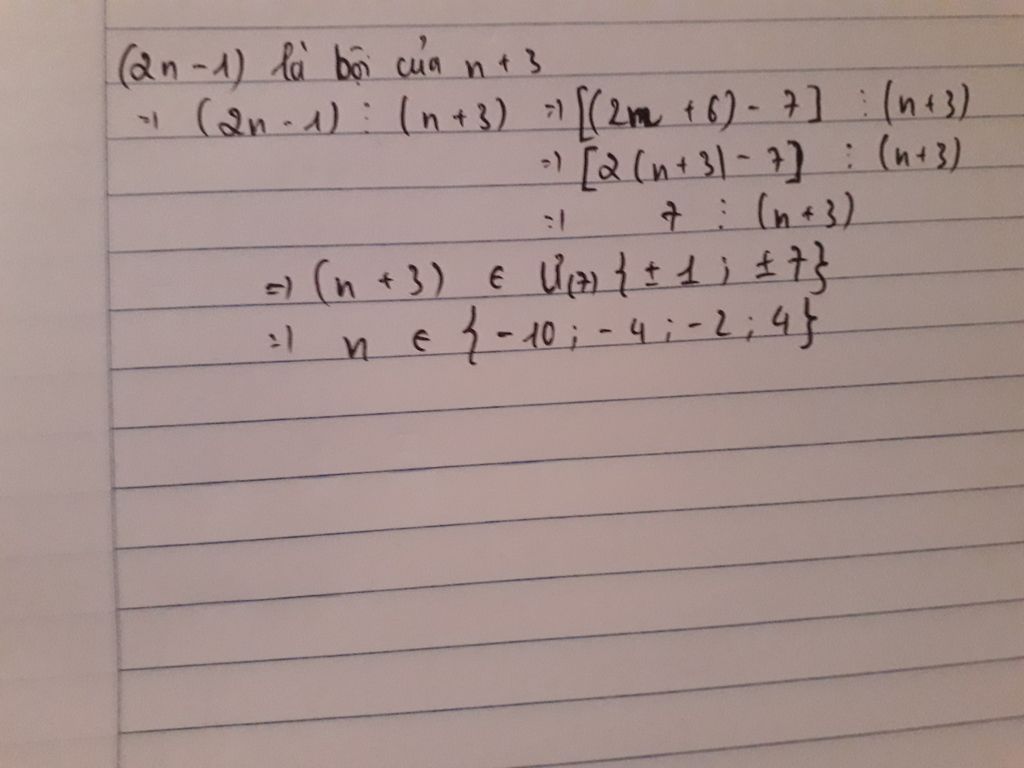 (2n - 1) là bội của n + 3
=> (2n - 1) ⋮ (n + 3) => [(2n + 6) - 7] ⋮ (n + 3)
=> [2 (n + 3) - 7] ⋮ (n + 3)
=> 7 ⋮ (n + 3)
=> (n + 3) ∈ Ư(7) { ± 1 ; ± 7 }
=> n ∈ { - 10 ; - 4 ; - 2 ; 4 }